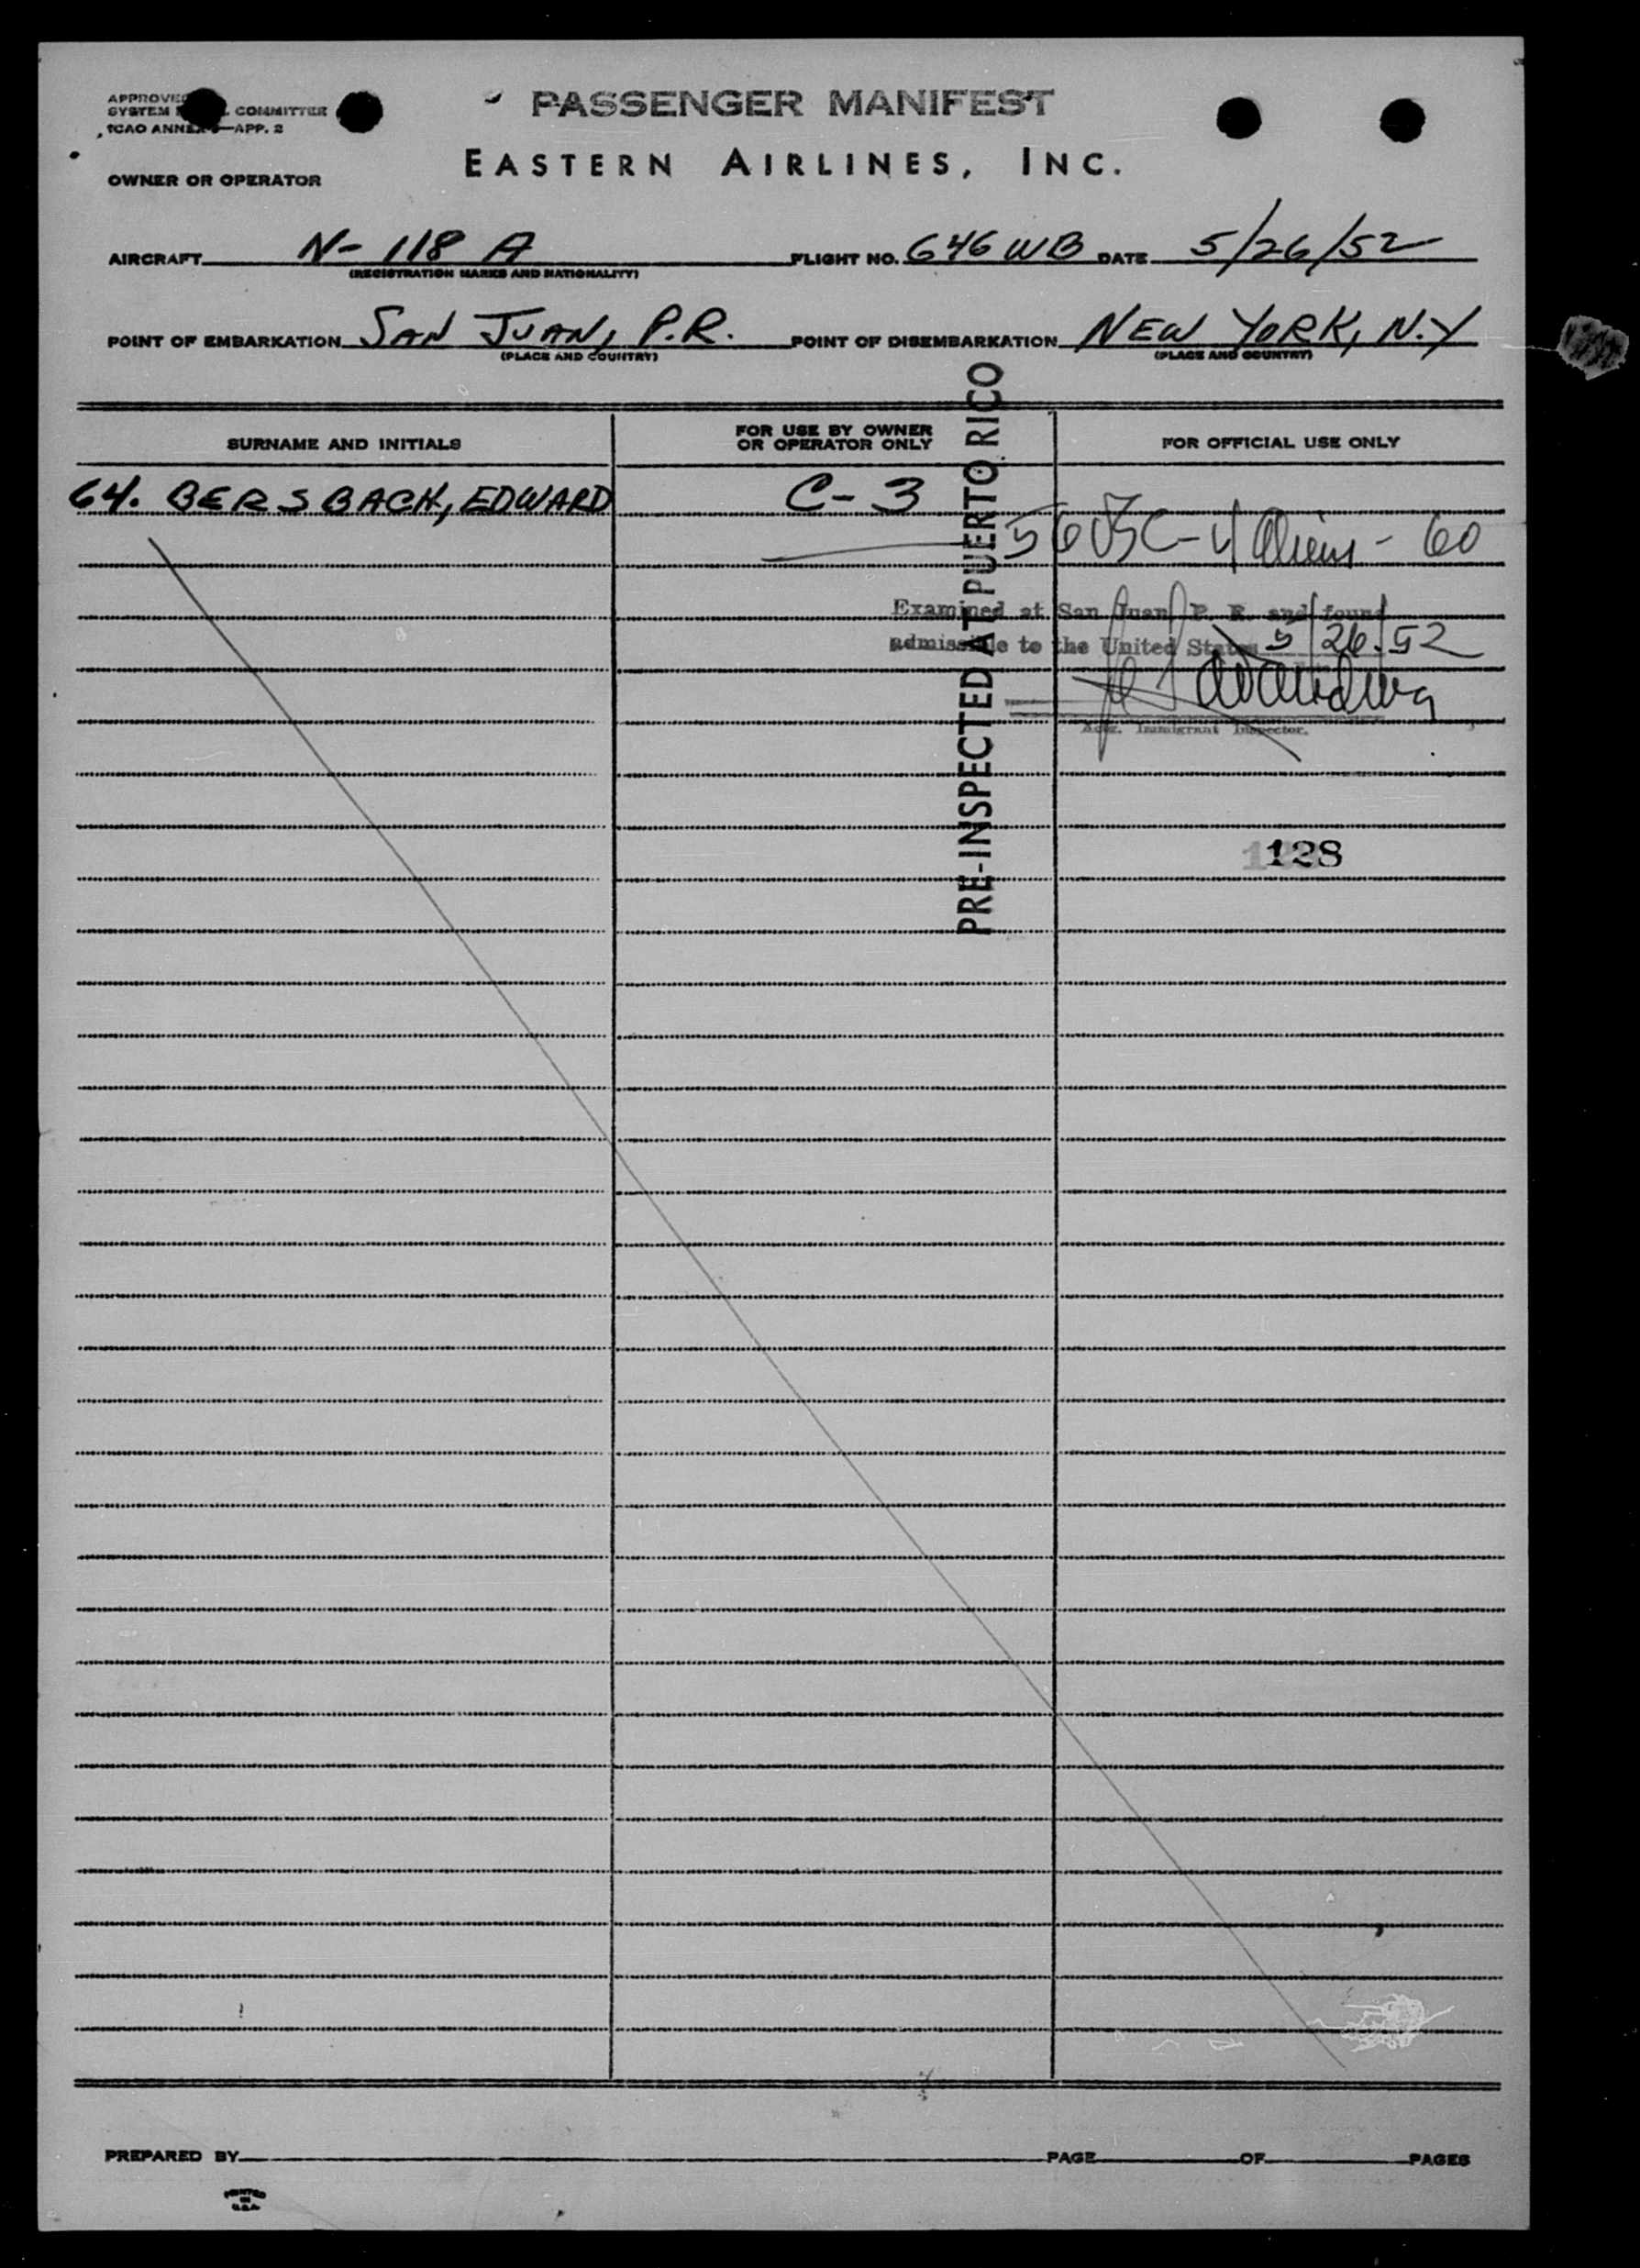 PASSENGER MANIFEST
APPROVED
SYSTEM COMMITTEE
ICAO ANNEX —APP. 2
EASTERN AIRLINES, INC.
OWNER OR OPERATOR
AIRCRAFT N-118 A FLIGHT NO. 646 WB DATE 5/26/52
(REGISTRATION MARKS AND NATIONALITY)
POINT OF EMBARKATION SAN JUAN, P.R. POINT OF DISEMBARKATION NEW YORK, N.Y
(PLACE AND COUNTRY) (PLACE AND COUNTRY)
SURNAME AND INITIALS
FOR USE BY OWNER
OR OPERATOR ONLY
FOR OFFICIAL USE ONLY
64. BERSBACH, EDWARD C-3
56 USC-4 Aliens - 60
PRE-INSPECTED AT PUERTO RICO
Examined at San Juan, P. R. and found
admissible to the United States 5/26/52
Immigrant Inspector.
128
PREPARED BY PAGE OF PAGES
PRINTED
IN
U.S.A.